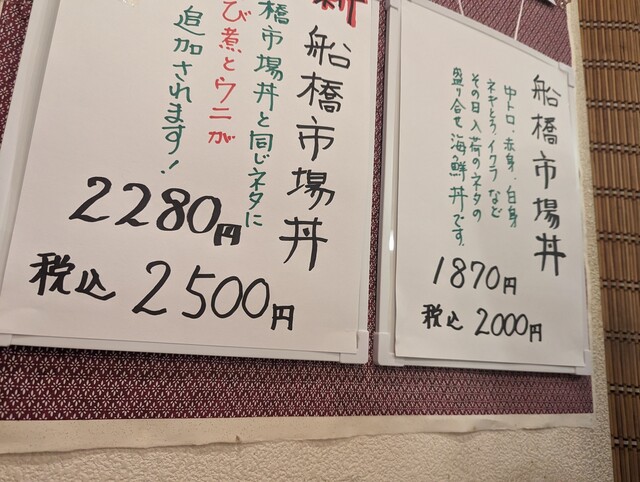 新 船橋市場丼
橋市場丼と同じネタに
び煮とウニが
追加されます!
2280円
税込 2500円
船橋市場丼
中トロ、赤身、白身
ネギトロ、イクラなど
その日入荷のネタの
盛り合せ海鮮丼です。
1870円
税込 2000円